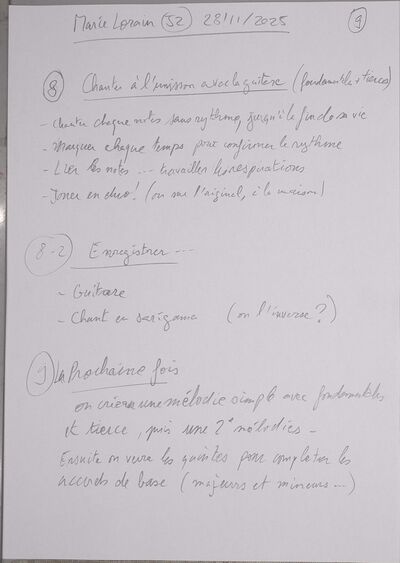 Marie Lorain (S2) 28/11/2025
9
8 Chanter à l'unisson avec la guitare (fondamentales + tierces)
- chanter chaque notes sans rythme, jusqu'à la fin de sa vie
- Marquer chaque temps pour confirmer le rythme
- Lier les notes ... travailler les respirations
- Jouer en duo! (ou sur l'original, à la maison)
8-2 Enregistrer ...
- Guitare
- Chant en sarigama (ou l'inverse?)
9 La Prochaine fois
on créera une mélodie simple avec fondamentales
et tierce, puis une 2° mélodies -
Ensuite on verra les quintes pour compléter les
accords de base (majeurs et mineurs ...)